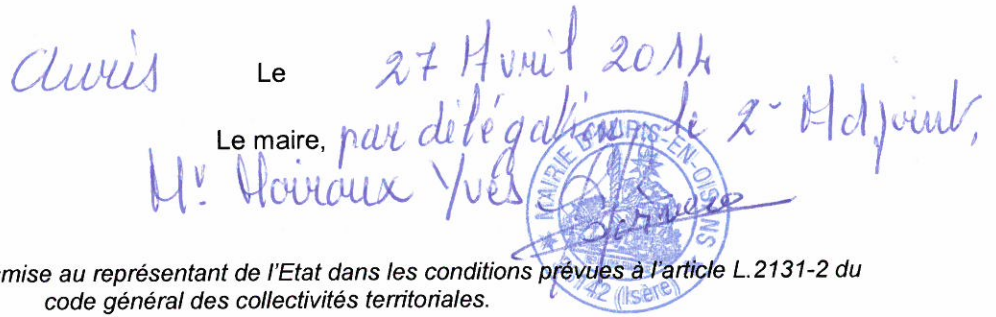 Auris Le 27 Avril 2014
Le maire, par délégation le 2e Adjoint,
Mr Moiroux Yves
MAIRIE D'AURIS-EN-OISANS
142 (Isère)
mise au représentant de l'Etat dans les conditions prévues à l'article L.2131-2 du
code général des collectivités territoriales.